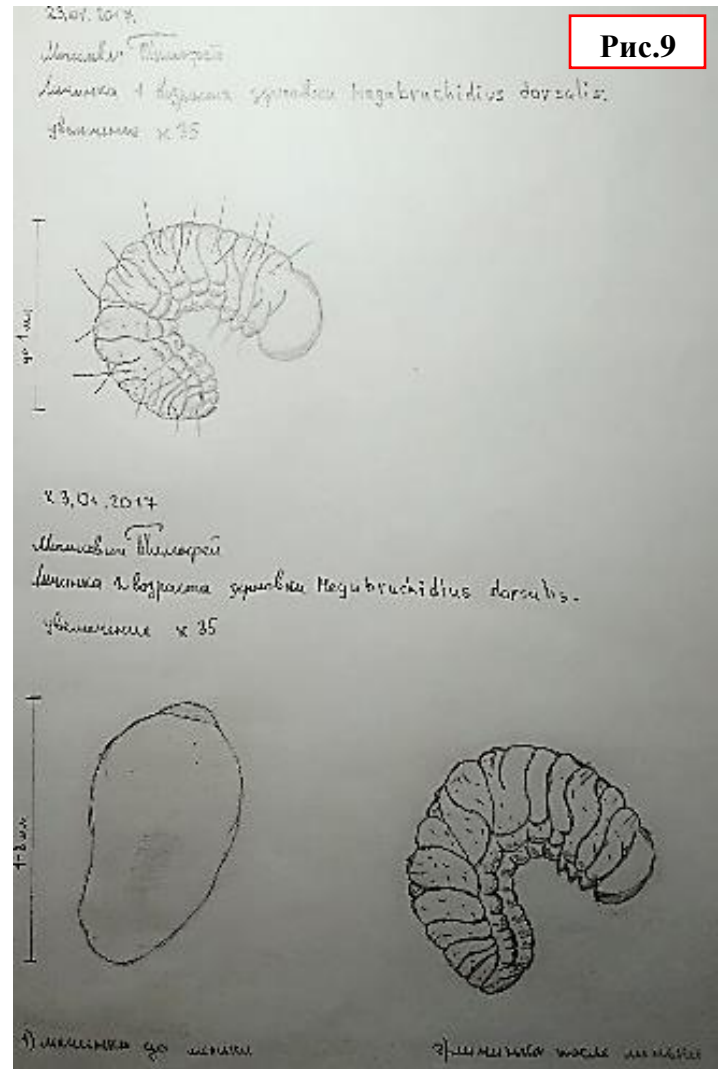 Рис.9
23,01.2017.
Тимофей
Личинка 1 возраста зерновки Megabruchidius dorsalis.
увеличение x 35
до 1 мм
23,01.2017
Тимофей
Личинка 2 возраста зерновки Megabruchidius dorsalis.
увеличение x 35
1-2 мм
1) личинка до линьки
2) личинка после линьки